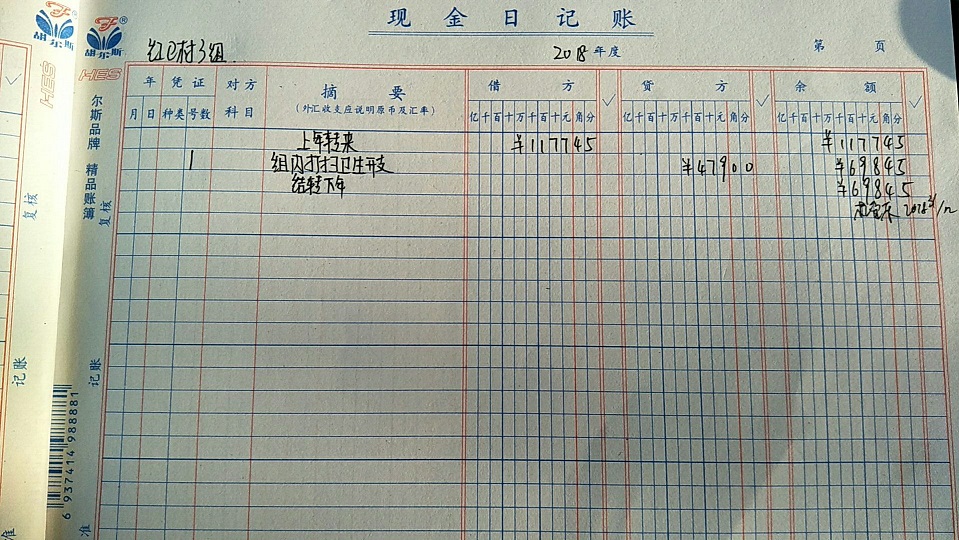 现金日记账
胡尔斯
胡尔斯®
HES
HES
红卫村3组
2018年度
第 页
年 凭证 对方 摘要 借方 ✓ 贷方 ✓ 余额 ✓
月 日 种类 号数 科目 (外汇收支应说明原币及汇率) 亿千百十万千百十元角分 亿千百十万千百十元角分 亿千百十万千百十元角分
上年转来 ¥117745 ¥117745
1 组内打扫卫生开支 ¥47900 ¥69845
结转下年 ¥69845
2018
尔斯品牌 精品账簿
复核
复核
记账
记账
6 937414 988881
准
准